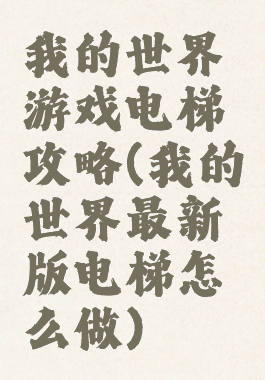 我的世界
游戏电梯
攻略(我的
世界最新
版电梯怎
么做)